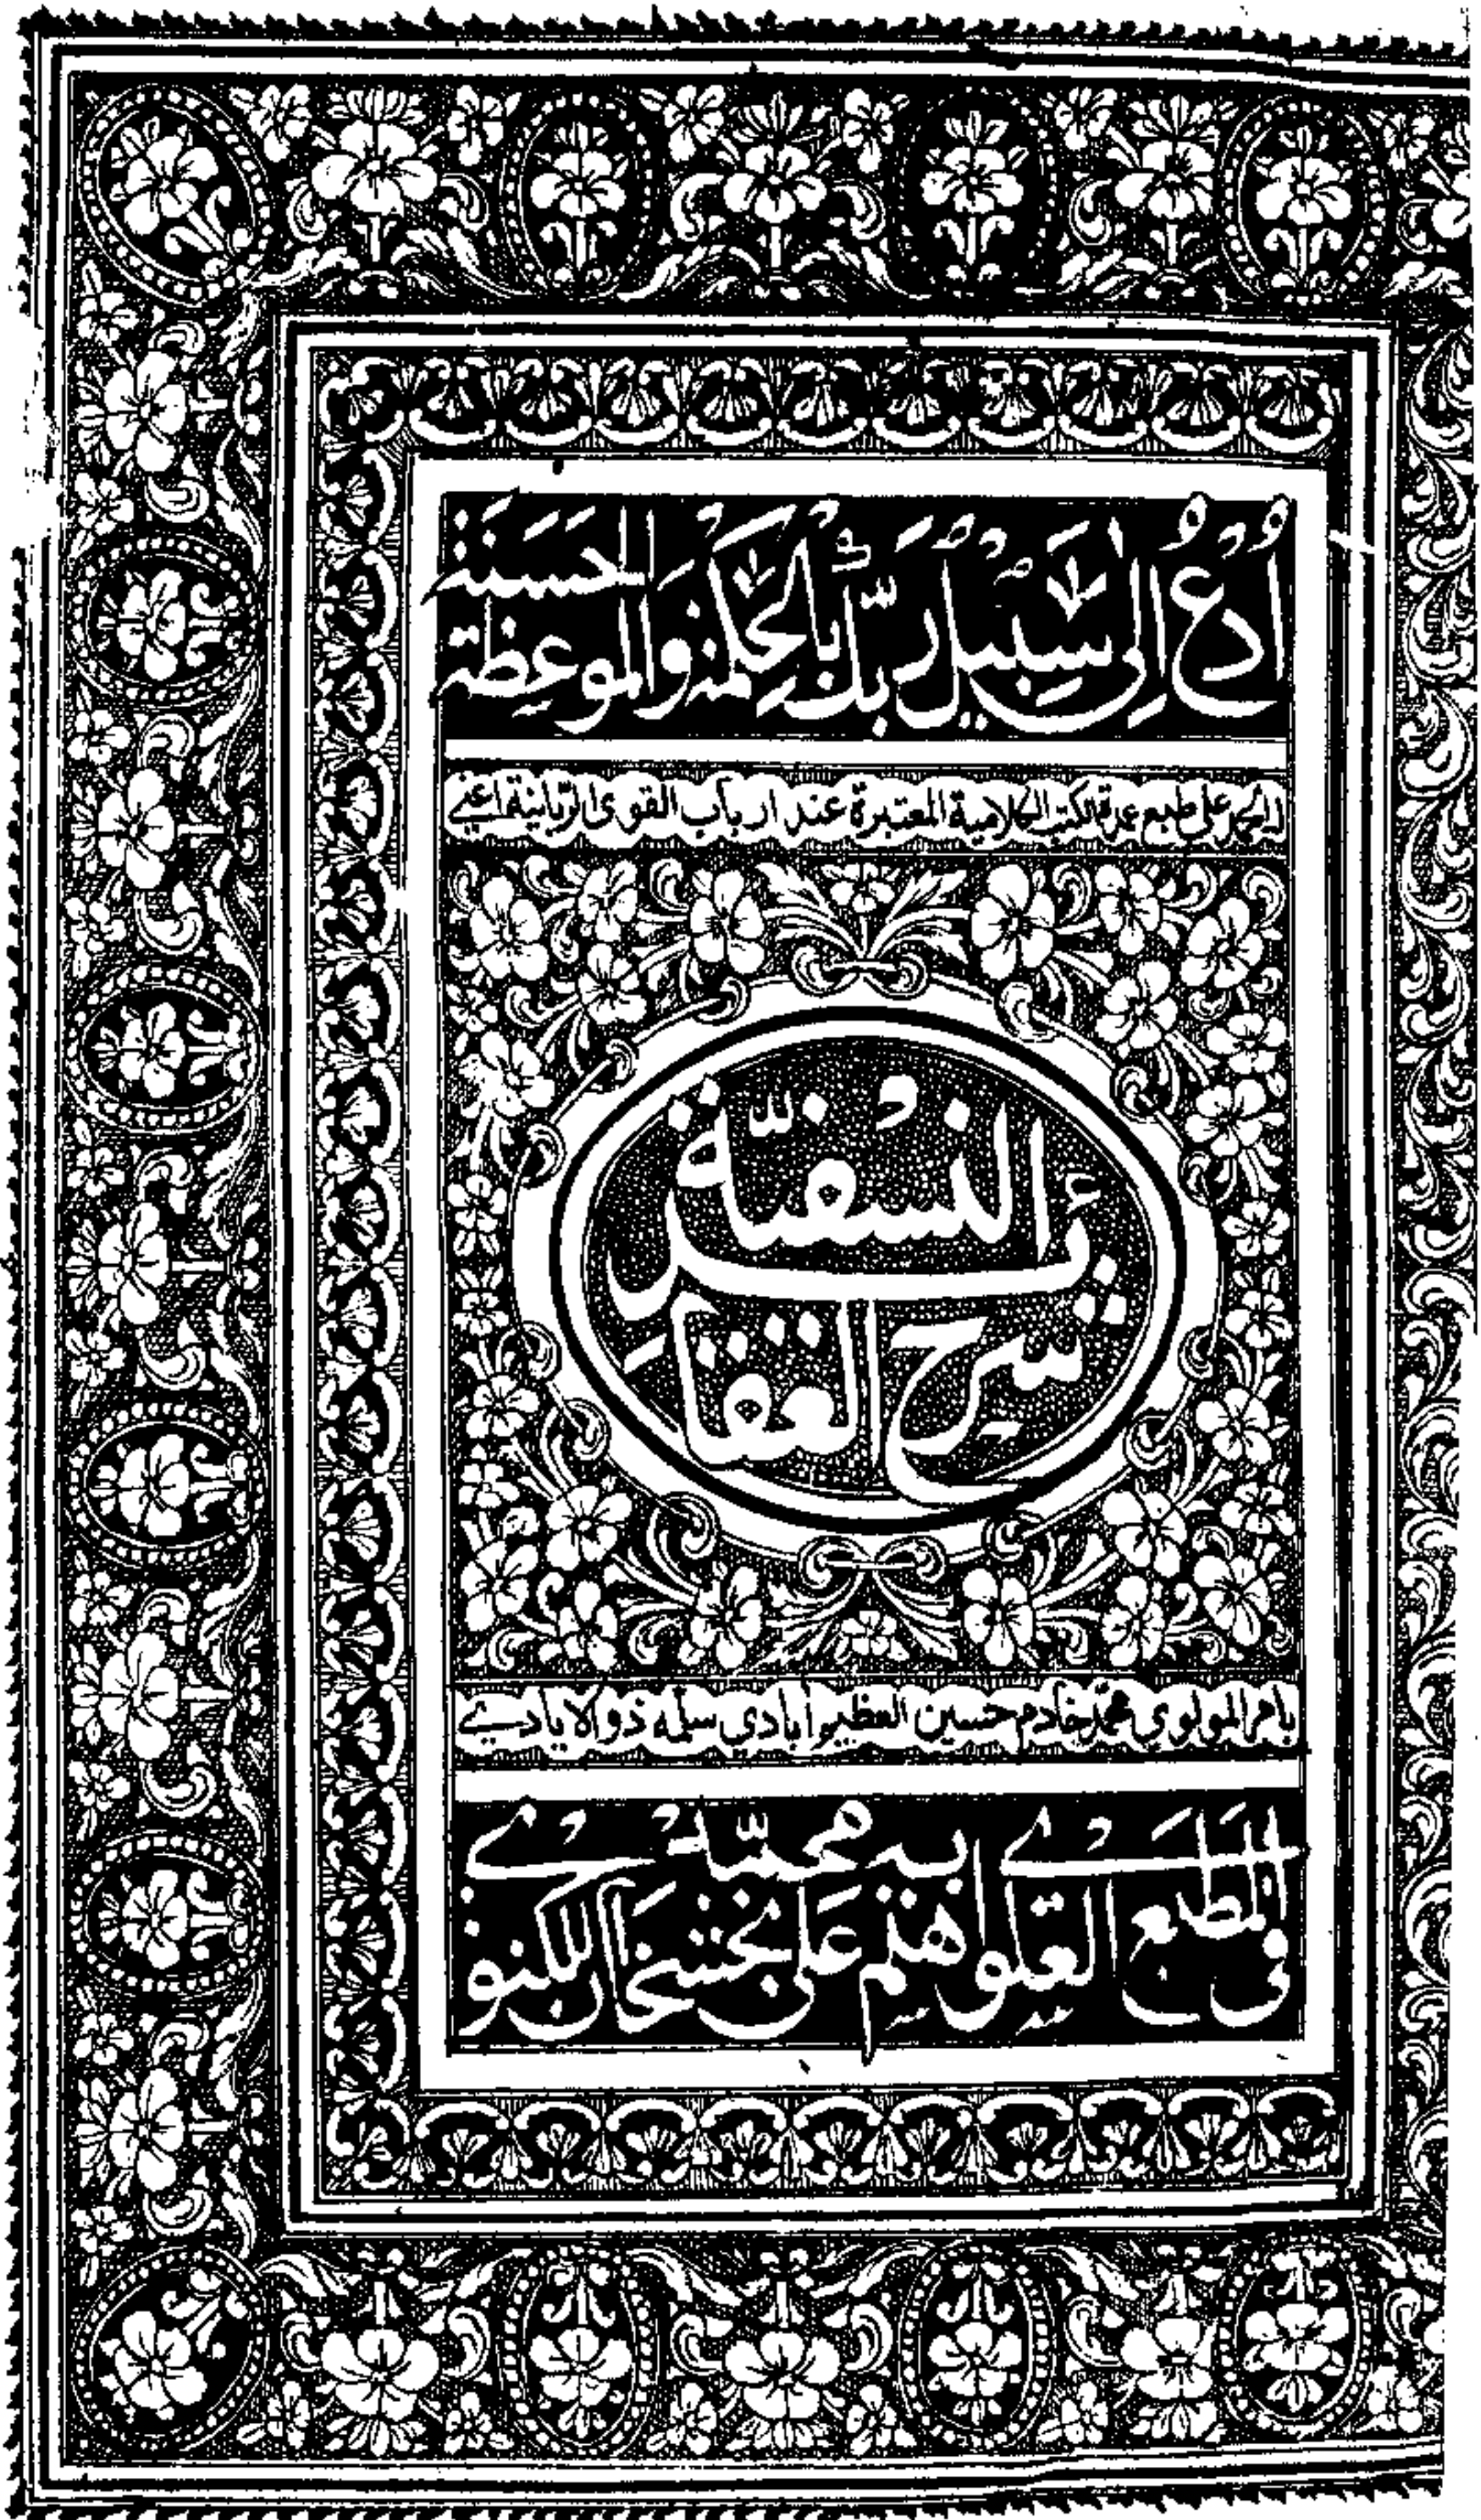 اُدْعُ اِلٰى سَبِيْلِ رَبِّكَ بِالْحِكْمَةِ وَالْمَوْعِظَةِ الْحَسَنَةِ
على طبع عمدة الكتب الكلامية المعتبرة عند ارباب القوى الربانية اعنے
شرح العقائد النسفية
بامر المولوي محمد خادم حسين العظيم ابادي سلمه ذو الايادي
في المطبع العلوي لعلى بخش خان اللكنوي